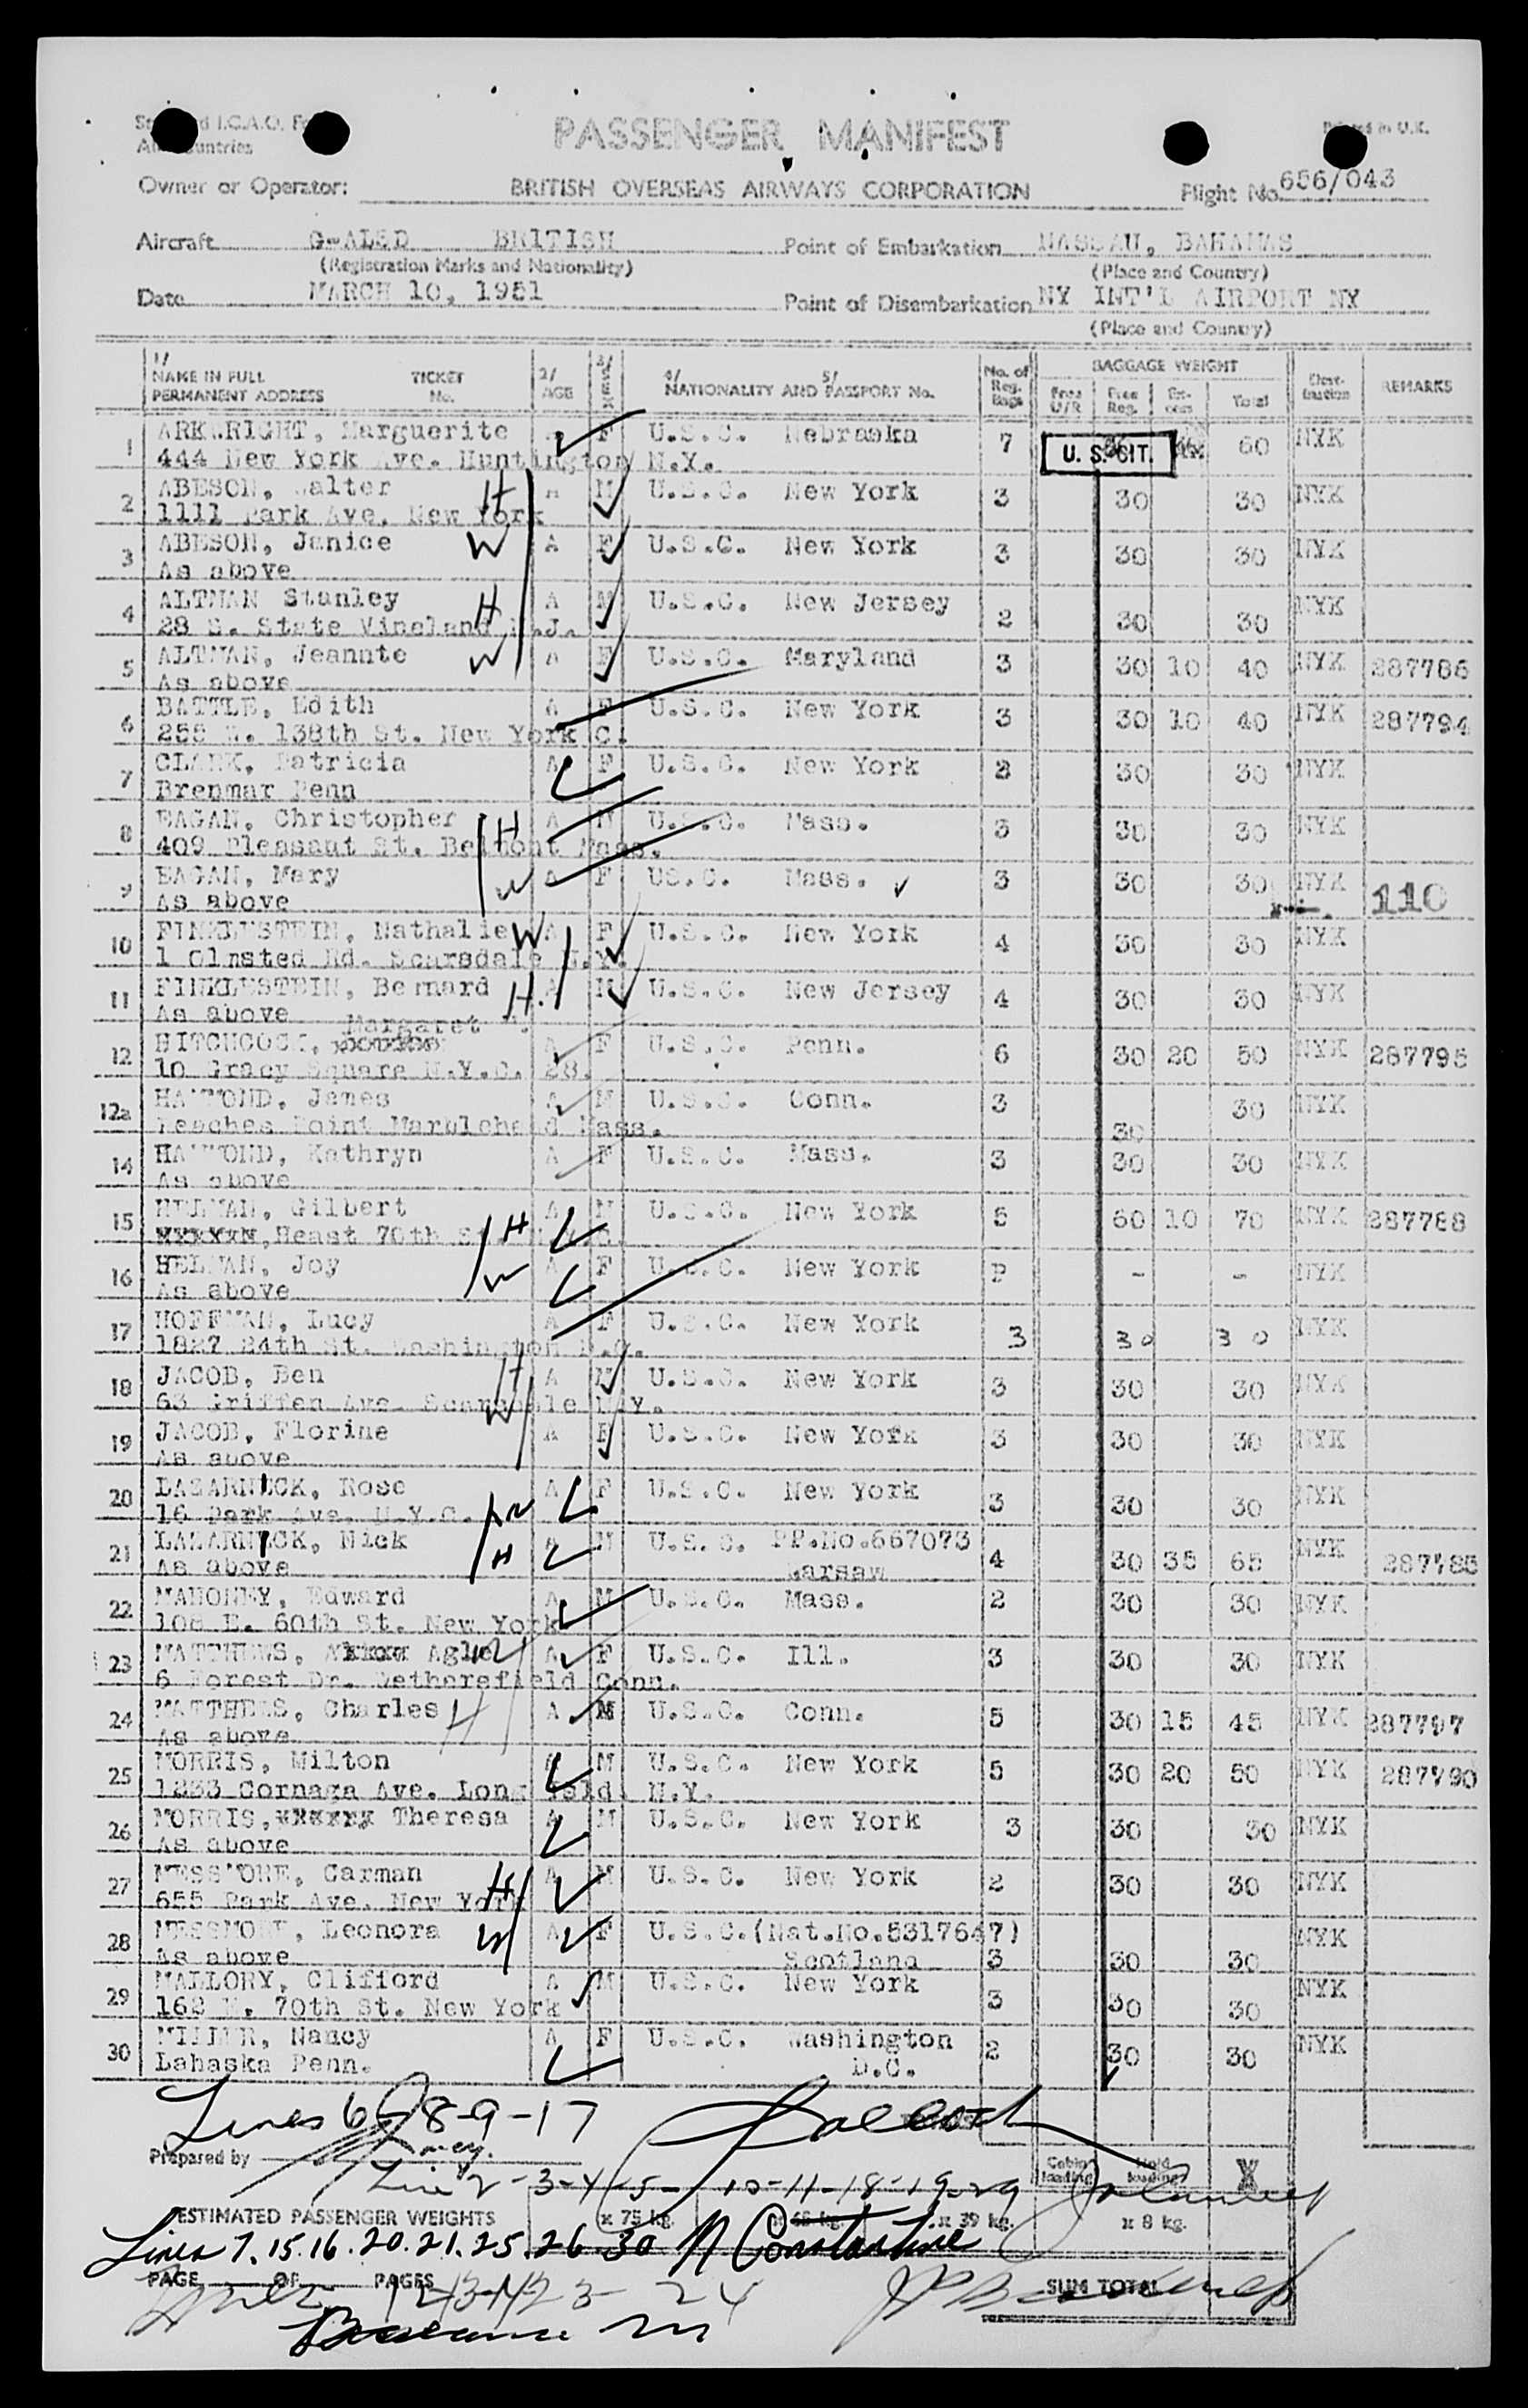 PASSENGER MANIFEST
Printed in U.K.
Owner or Operator: BRITISH OVERSEAS AIRWAYS CORPORATION Flight No. 656/043
Aircraft BRITISH Point of Embarkation NASSAU, BAHAMAS
(Registration Marks and Nationality) (Place and Country)
Date MARCH 10, 1951 Point of Disembarkation NY INT'L AIRPORT NY
(Place and Country)
1/ NAME IN FULL PERMANENT ADDRESS TICKET No. 2/ AGE 3/ SEX 4/ NATIONALITY AND 5/ PASSPORT No. No. of Reg. Bags BAGGAGE WEIGHT Free U/R Free Reg. Ex-cess Total Dest-ination REMARKS
1 ARKWRIGHT, Marguerite F U.S.C. Nebraska 7 U. S. CIT. 60 NYK
444 New York Ave. Huntington N.Y.
2 ABESON, Walter H A M U.S.C. New York 3 30 30 NYK
1111 Park Ave. New York
3 ABESON, Janice W A F U.S.C. New York 3 30 30 NYK
As above
4 ALTMAN Stanley H A M U.S.C. New Jersey 2 30 30 NYK
28 S. State Vineland N.J.
5 ALTMAN, Jeannte W A F U.S.C. Maryland 3 30 10 40 NYK 287786
As above
6 BATTLE, Edith A F U.S.C. New York 3 30 10 40 NYK 287794
255 W. 138th St. New York C.
7 CLARK, Patricia A F U.S.C. New York 2 30 30 NYK
Brenmar Penn
8 EAGAN, Christopher H A M U.S.C. Mass. 3 30 30 NYK
409 Pleasant St. Belmont Mass.
9 EAGAN, Mary W A F US.C. Mass. 3 30 30 NYK 110
As above
10 FINKLESTEIN, Nathalie W A F U.S.C. New York 4 30 30 NYK
1 Olmsted Rd. Scarsdale N.Y.
11 FINKLESTEIN, Bernard H. A M U.S.C. New Jersey 4 30 30 NYK
As above
12 HITCHCOCK, Margaret A F U.S.C. Penn. 6 30 20 50 NYK 287795
10 Gracy Square N.Y.C. 28.
12a HAMMOND, James A M U.S.C. Conn. 3 30 30 NYK
Peaches Point Marblehead Mass.
14 HAMMOND, Kathryn A F U.S.C. Mass. 3 30 30 NYK
As above
15 HELMAN, Gilbert H A M U.S.C. New York 60 10 70 NYK 287788
70th St. N.Y.C.
16 HELMAN, Joy W A F U.S.C. New York P - - NYK
As above
17 HOFFMAN, Lucy A F U.S.C. New York 3 30 30 NYK
1827 24th St. Washington D.C.
18 JACOB, Ben H A M U.S.C. New York 3 30 30 NYK
63 Griffen Ave. Scarsdale N.Y.
19 JACOB, Florine W A F U.S.C. New York 3 30 30 NYK
As above
20 LAZARNICK, Rose W A F U.S.C. New York 3 30 30 NYK
16 Park Ave. N.Y.C.
21 LAZARNICK, Nick H A M U.S.C. PP.No.667073 4 30 35 65 NYK 287785
As above Warsaw
22 MAHONEY, Edward A M U.S.C. Mass. 2 30 30 NYK
108 E. 60th St. New York
23 MATTHEWS, W A F U.S.C. Ill. 3 30 30 NYK
6 Forest Dr. Wethersfield Conn.
24 MATTHEWS, Charles H A M U.S.C. Conn. 5 30 15 45 NYK 287797
As above
25 MORRIS, Milton M U.S.C. New York 5 30 20 50 NYK 287790
1233 Cornaga Ave. Long Isld. N.Y.
26 MORRIS, Theresa A M U.S.C. New York 3 30 30 NYK
As above
27 MESSMORE, Carman H A M U.S.C. New York 2 30 30 NYK
655 Park Ave. New York
28 MESSMORE, Leonora W A F U.S.C. (Nat.No.5317647) 3 30 30 NYK
As above Scotland
29 MALLORY, Clifford A M U.S.C. New York 3 30 30 NYK
162 E. 70th St. New York
30 MILLER, Nancy A F U.S.C. Washington 2 30 30 NYK
Lahaska Penn. D.C.
Lines 6-8-9-17
Prepared by Cabin loading Hold loading X
Line 2-3-4-5- 10-11-18-19-29
ESTIMATED PASSENGER WEIGHTS x 75 kg. x 65 kg. x 39 kg. x 8 kg.
Lines 7.15.16.20.21.25.26.30 N Constantine
PAGE OF PAGES SUM TOTAL